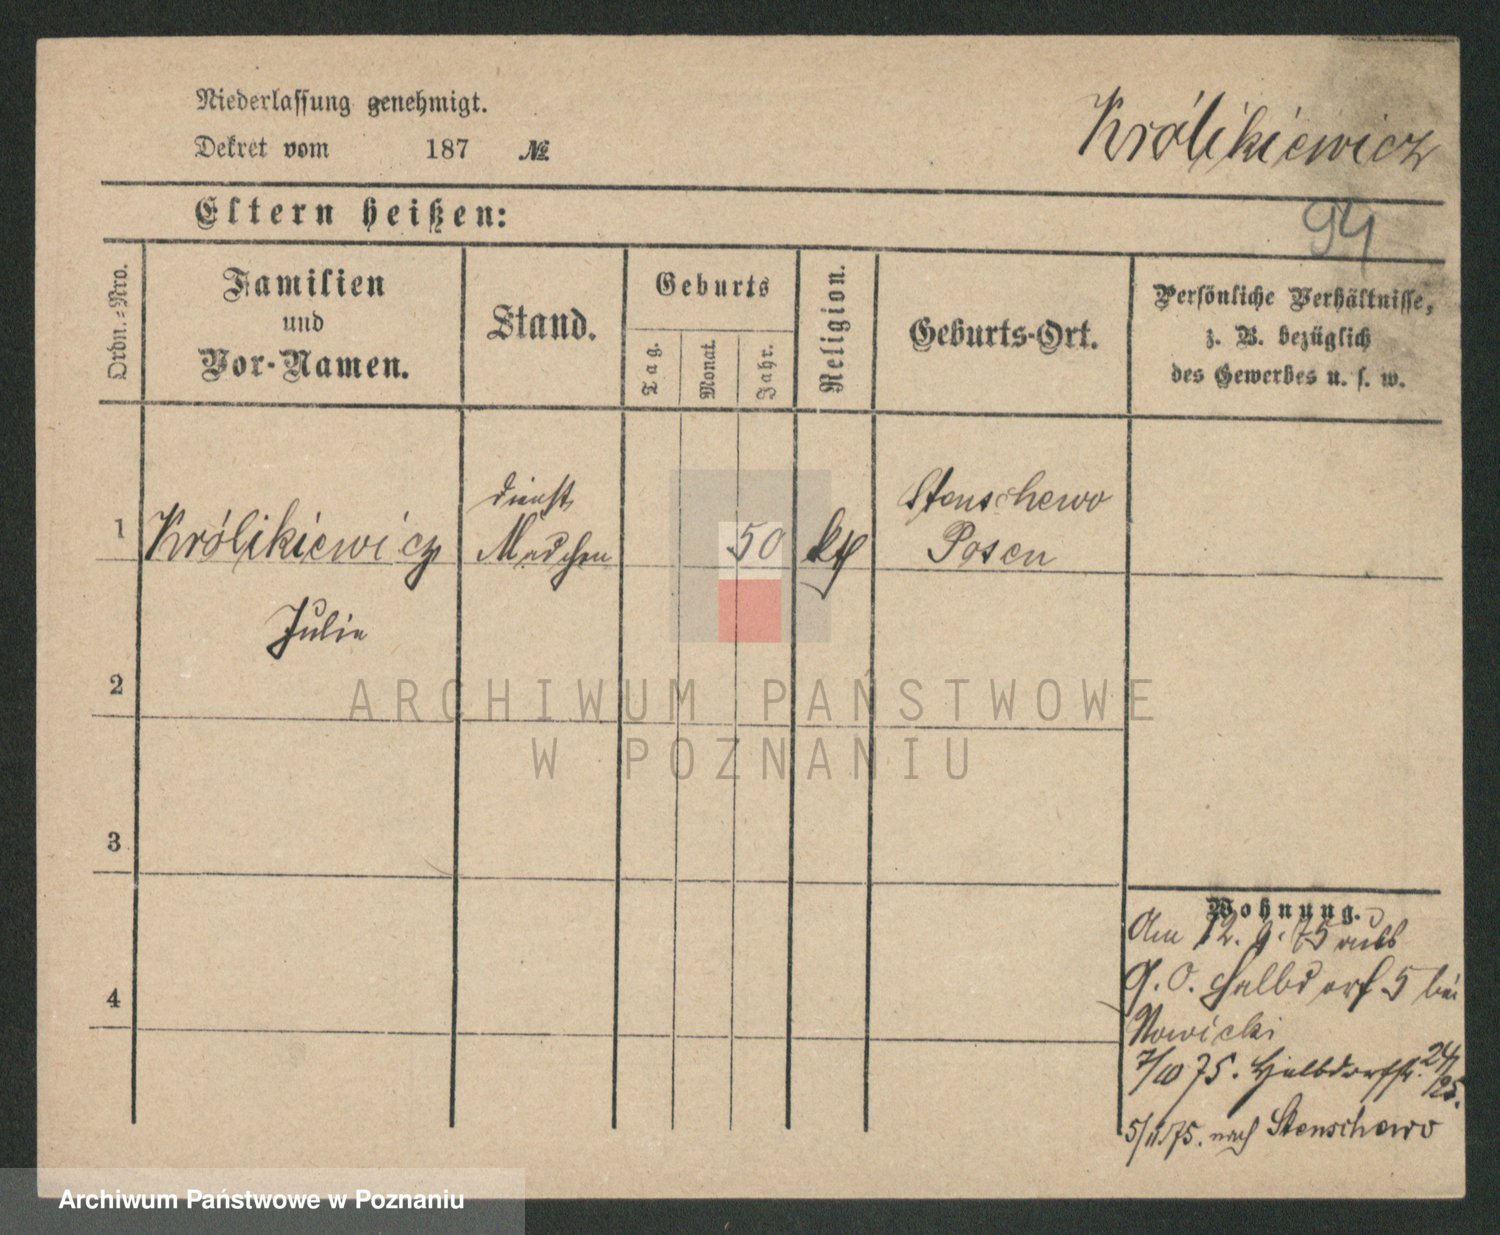 Niederlassung genehmigt.
Królikiewicz
Dekret vom 187 №
Eltern heißen:
94
Ordn.=Nro.
Familien
und
Vor-Namen.
Stand.
Geburts
Tag.
Monat.
Jahr.
Religion.
Geburts-Ort.
Persönliche Verhältnisse,
z. B. bezüglich
des Gewerbes u. s. w.
1
Królikiewicz
Julie
dienst
Mädchen
50
kt
Stenschewo
Posen
2
3
4
Wohnung.
Am 12. 9. 75
G. O. Halbdorf 5 bei
Nowicki
7/10 75. Halbdorfstr. 24/
25.
5/11 75. nach Stenschewo
ARCHIWUM PAŃSTWOWE
W POZNANIU
Archiwum Państwowe w Poznaniu